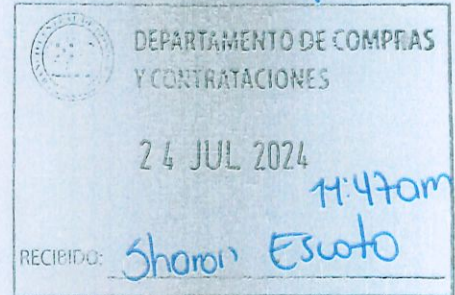 DEPARTAMENTO DE COMPRAS
Y CONTRATACIONES
24 JUL 2024
11:47am
RECIBIDO: Sharon Escoto